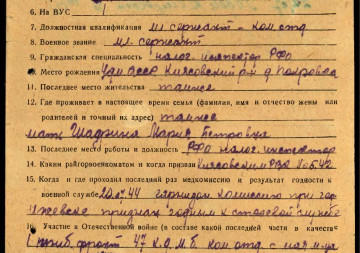 6. На ВУС
7. Должностная квалификация мл. сержант - ком. отд
8. Военное звание мл. сержант
9. Гражданская специальность налог. инспектор РФО
10. Место рождения Удм АССР Киясовский р-н д. Покровка
11. Последнее место жительства там же
12. Где проживает в настоящее время семья (фамилия, имя и отчество жены или
родителей и точный их адрес) там же
мать Шадрина Мария Петровна
13. Последнее место работы и должность РФО налог. инспектор
14. Каким райгорвоенкоматом и когда призван Киясовским РВК
15. Когда и где проходил последний раз медкомиссию и результат годности к
военной службе 20.07.44 гарнизон. комиссия при гор
Ижевске признан годным к строевой службе
16. Участие в Отечественной войне (в составе какой последней части в качестве
фронт 47 ком. отд с